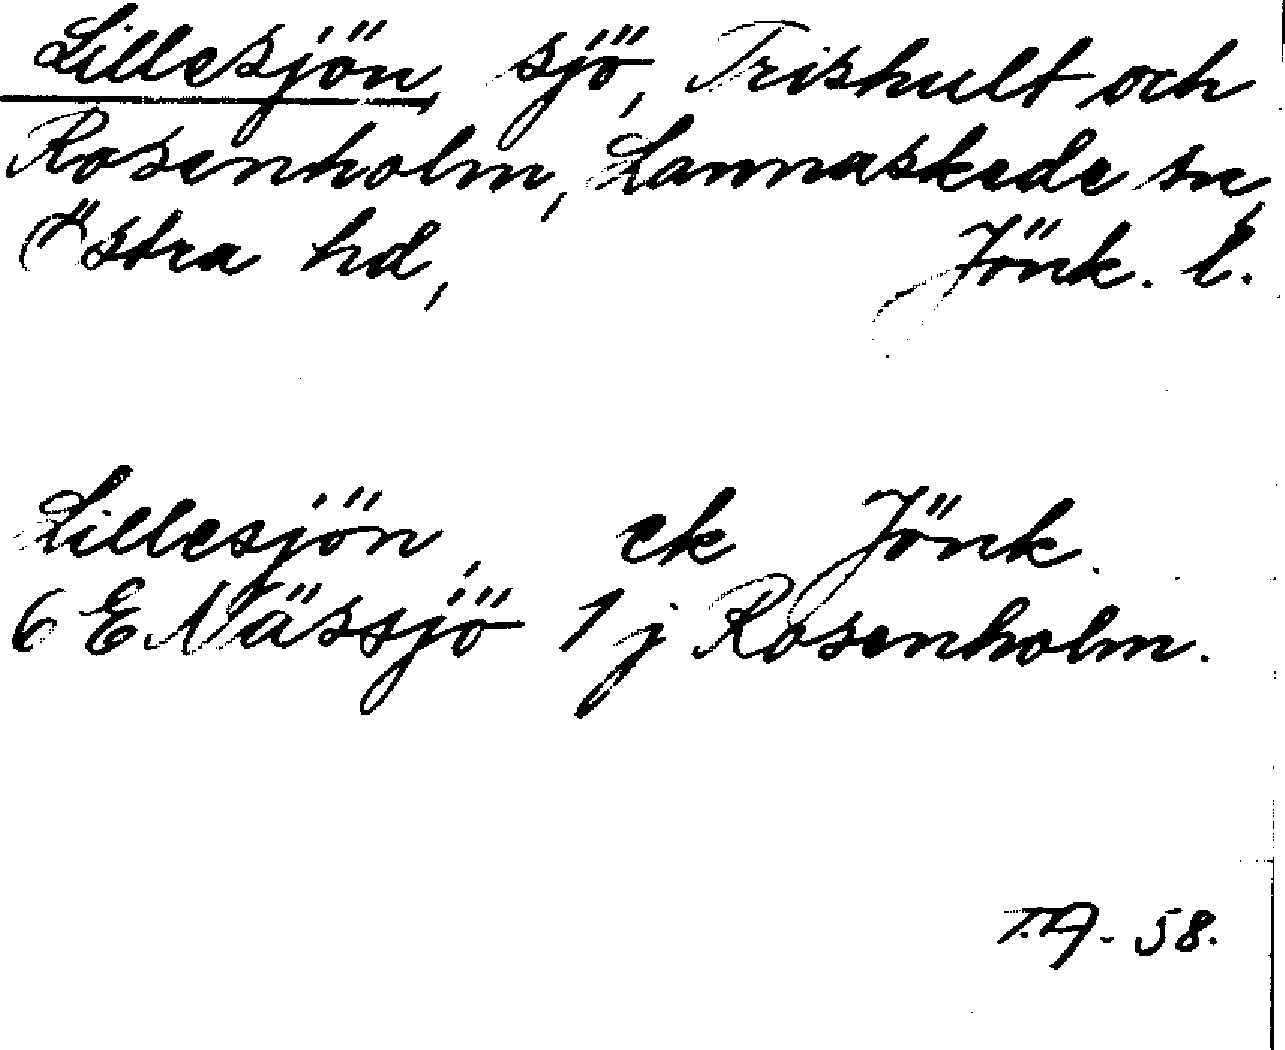 Lillesjön, sjö, Trishult och
Rosenholm, Lannaskede sn,
Östra hd, Jönk. l.
Lillesjön, ek Jönk.
6 E Nässjö 1 j Rosenholm.
T.A. 58.